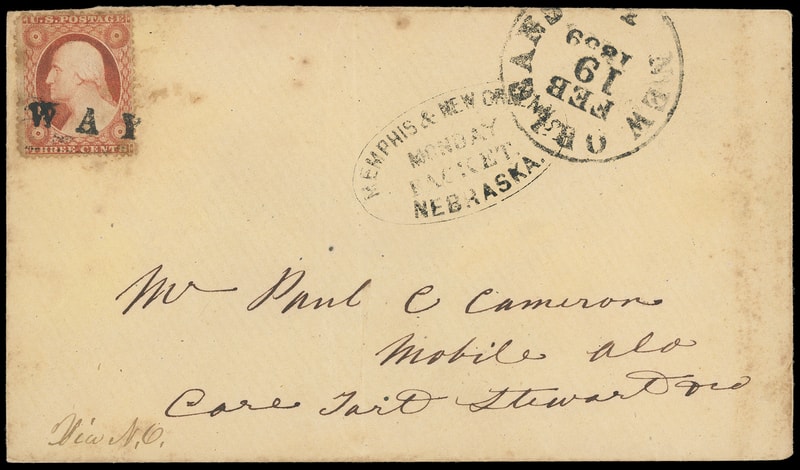 U.S. POSTAGE
WAY
THREE CENTS
MEMPHIS & NEW OR
MONDAY
PACKET.
NEBRASKA.
NEW ORLEANS
FEB
19
Mr Paul C Cameron
Mobile Ala
Care Tart Stewart &co
Via N.O.